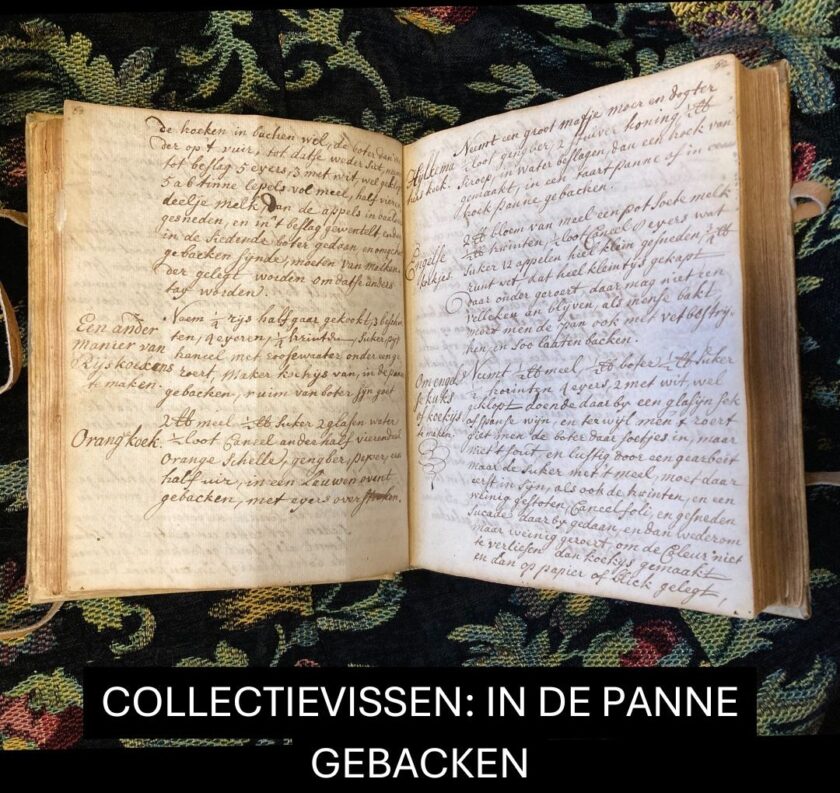 de koeken in bachen wel, de boter
der op t vuir, tot datse weder
tot beslag 5 eyers, 3 met wit, wel
5 a 6 tinne lepels vol meel, half
deeltje melk, Dan de appels in
gesneden, en in't beslag gewentelt
in de siedende boter gedaen, en
gebacken sijnde, moeten van malkan
der gelegt worden om datse anders
tay worden.
Een ander
manier van
Rijskoekens
te maken.
Neem 1/4 rijs half gaar gekookt, 3
ten, 4 eyeren, Suker,
kaneel met roosewaater onder een ge
roert, Maker koekys van, in de pan
gebacken, ruim van boter sijn goet
Orang koek.
2 lb meel 1/2 lb Suker 2 glasen water
1/2 loot Caneel ander half vierendeel
Orange Schelle, gengber, peper, een
half uir, in een Lauwen oven
gebacken, met eyers overstreken.
62
kuk.
Neemt een groot matje moer en dogter
1/2 loot gengber, 2 stuiver honing,
siroop, en water beslagen, dan een koek van
gemaakt, in een taart panne of in een
koek panne gebacken.
Engelse
2 lb bloem van meel een pot soete melk
krinten, 1/2 loot Caneel 8 eyers wat
Suker 12 appelen heel klein gesneden,
runt vet, dat heel kleintjes gekapt
daar onder geroert, daar mag niet een
velleken an blijven, als mense bakt,
moet men de pan ook met vet bestrij
ken, en soo laaten backen.
Om engel
se kuks
of koekijs
te maken.
Neemt 1 lb meel boter Suker
4 eyers, 2 met wit, wel
geklopt, doende daar by een glasijn sek
of spanse wijn, en terwijl men t roert
giet men de boter daar soetjes in, maar
niet t sout, en lustig door een gearbeit
maar de Suker met t meel, moet daar
eerst in sijn, als ook de krinten, en een
weinig gestoten Caneel, foli, en gesneden
Sucade daar by gedaen, en dan wederom
maar weinig geroert, om de Coleur niet
te verliesen, dan koekys gemaakt
en dan op papier of blick gelegt,
COLLECTIEVISSEN: IN DE PANNE
GEBACKEN